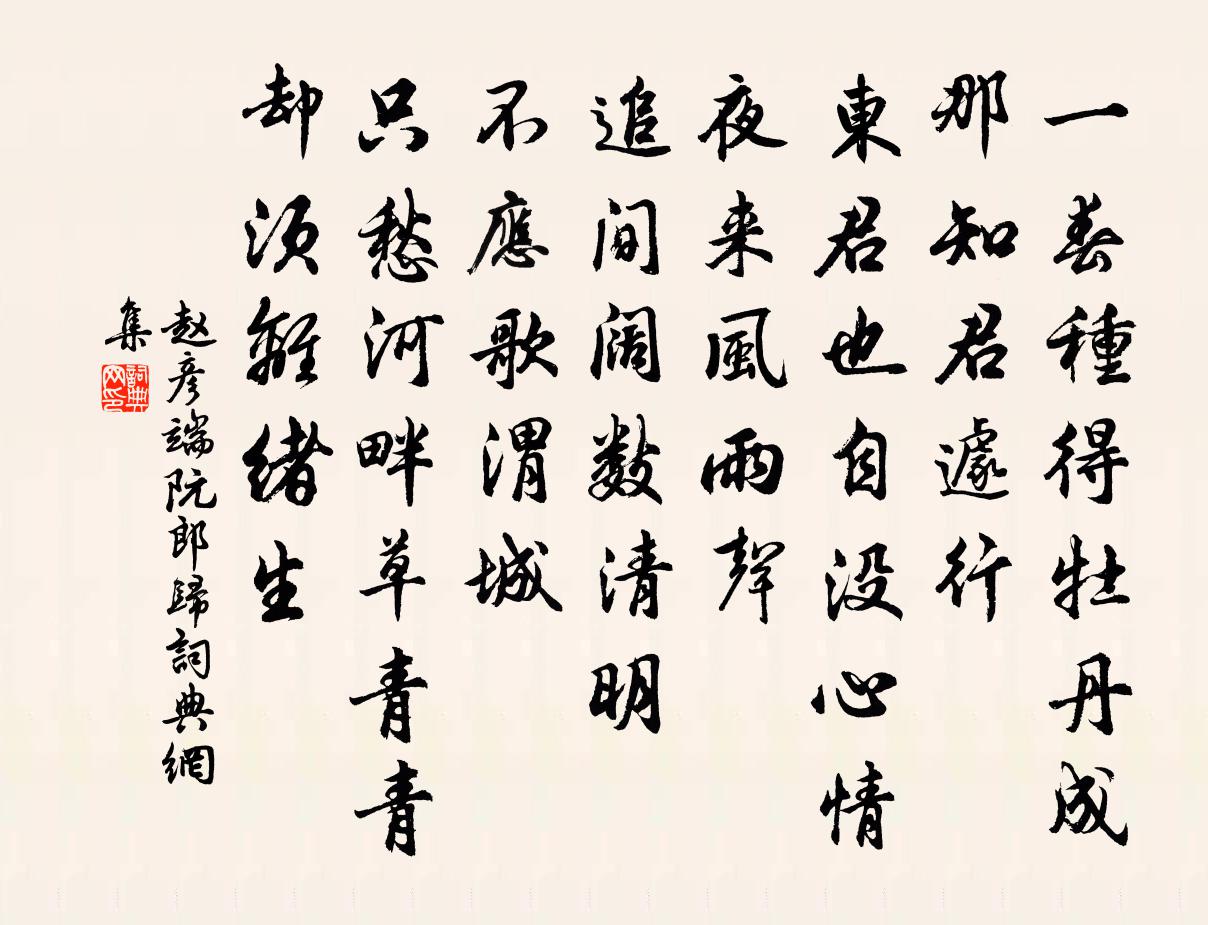 一春種得牡丹成
那知君遽行
東君也自没心情
夜来風雨聲
追间阔數清明
不應歌渭城
只愁河畔草青青
却須離緒生
赵彦端阮郎歸詞典網
集
詞典网印